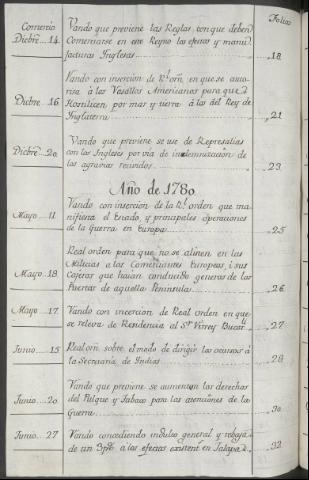 Folios
Comercio Vando que previene las Reglas con que deben
Dicbre 14. Comerciarse en este Reyno los efectos y manu
facturas Inglesas 18
Vando con insercion de Rl. orñ, en que se auto
risa à los Vasallos Americanos para que
Dicbre 16 Hostilicen por mar y tierra à los del Rey de
Inglaterra 21
Vando que previene se use de Represalias
Dicbre 20 con los Ingleses por via de indemnizacion de
los agravios recividos 23
Año de 1780.
Vando con insercion de la Rl. orden que ma
Mayo 11 nifiesta el Estado, y principales operaciones
de la Guerra en Europa 25
Real orden para que no se alisten en las
Milicias a los Comerciantes Europeos, i sus
Mayo 18 Cajeros que hayan conducido generos de los
Puertos de aquella Peninsula 26
Mayo 17 Vando con insercion de Real orden en que
se releva de Residencia al Sr. Virrey Bucarl. 27
Junio 15 Real orñ. sobre el modo de dirigir los ocursos à
la Secretaría de Indias 28
Vando que previene se aumentan los derechos
Junio 20 del Pulque y Tabaco para las atenciones de la
Guerra 30
Junio 27 Vando concediendo indulto general y rebaja
de un 3 pc. à los efectos existentes en Jalapa 32